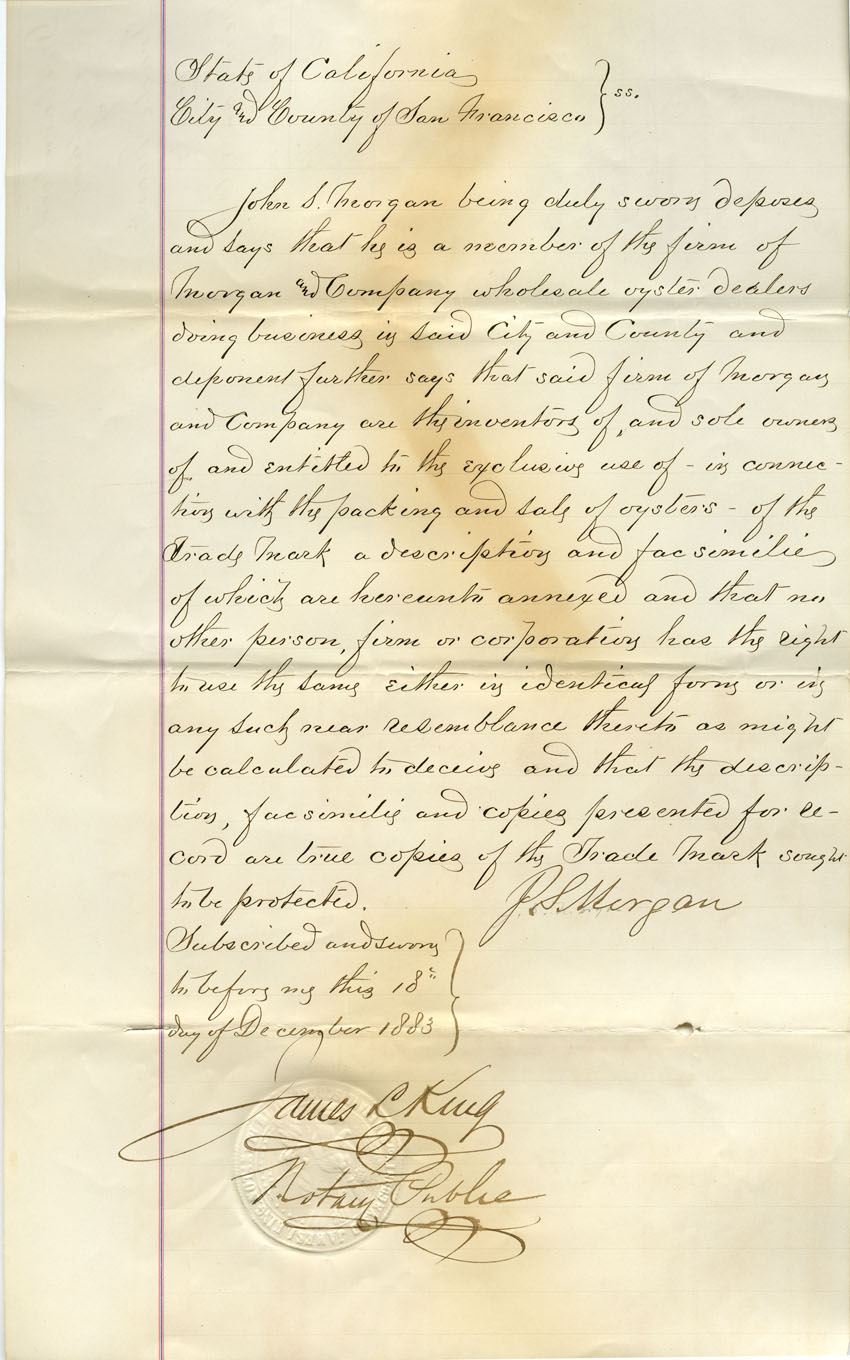 State of California } ss.
City and County of San Francisco
John S. Morgan being duly sworn deposes
and says that he is a member of the firm of
Morgan and Company wholesale oyster dealers
doing business in said City and County and
deponent further says that said firm of Morgan
and Company are the inventors of, and sole owners
of, and entitled to the exclusive use of - in connec-
tion with the packing and sale of oysters - of the
Trade Mark a description and facsimilie
of which are hereunto annexed and that no
other person, firm or corporation has the right
to use the same either in identical form or in
any such near resemblance thereto as might
be calculated to deceive and that the descrip-
tion, facsimilie and copies presented for re-
cord are true copies of the Trade Mark sought
to be protected.
J. S. Morgan
Subscribed and sworn
to before me this 18th
day of December 1883
James L King
Notary Public